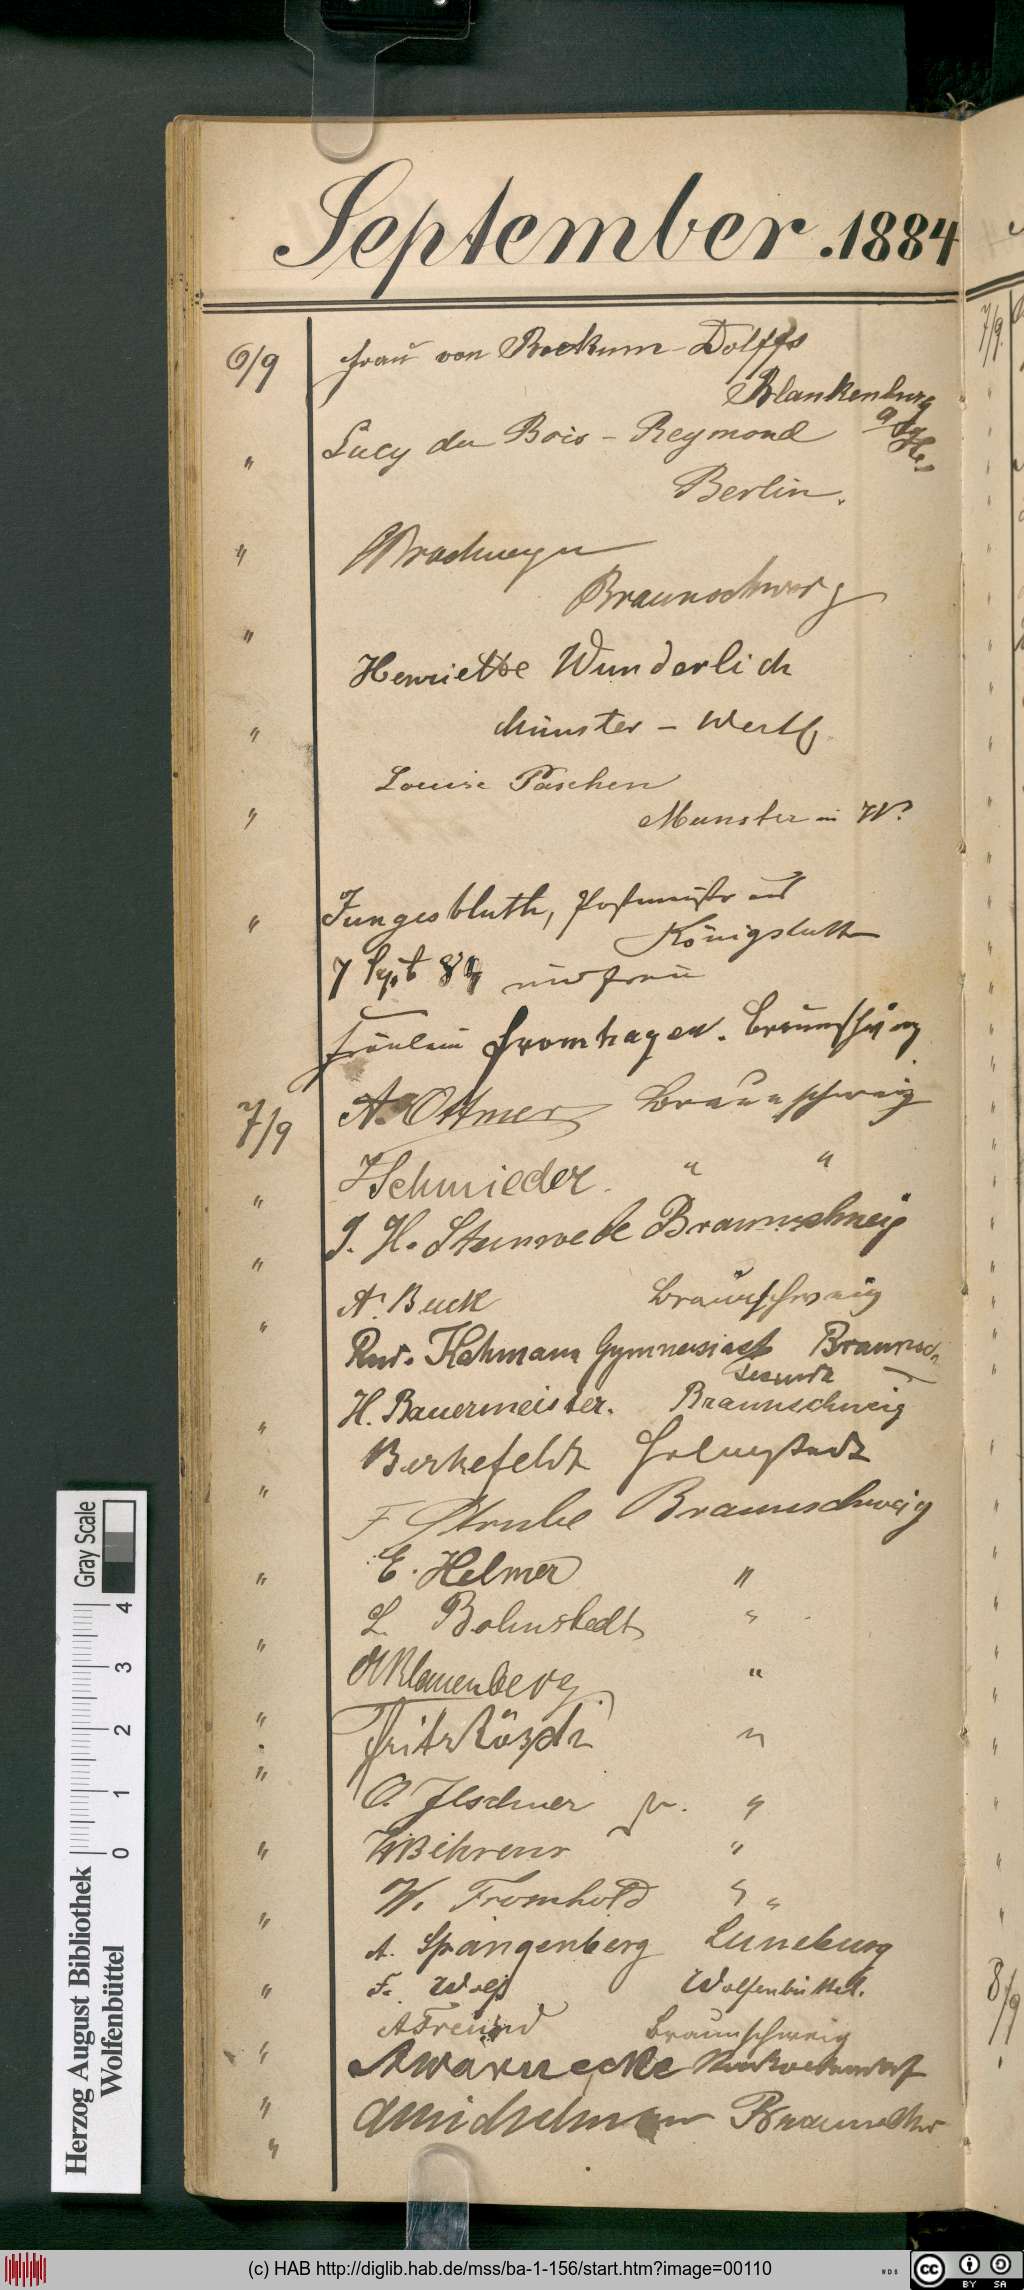 September. 1884
6/9 Frau von Bockum-Dolffs
Blankenburg
a/H.
" Lucy du Bois-Reymond
Berlin.
"
Braunschweig
" Henriette Wunderlich
Münster – Westf.
" Louise Paschen
Münster in W.
" Jungesbluth, Postmeister aus
Königslutter
7 Sept 84 und Frau
Fräulein Fromhagen. Braunschweig
7/9 A. Ottmer Braunschweig
" Schmieder. " "
J. H. Braunschweig
" A. Buck Braunschweig
" Rud. Hohmann Gymnasiast Braunsch.
H. Bauermeister. Braunschweig
" Berkefeldt Helmstedt
" F Strube Braunschweig
" E. Helmer "
" L. Bohnstedt "
Klauenberg "
" Fritz "
" O. Ilschner jr. "
" Behrens "
" W. Fromhold " "
A. Spangenberg Lüneburg
" F. Wolff Wolfenbüttel.
A Freund Braunschweig
" A Warnecke
"
7/9.
8/9
Herzog August Bibliothek
Wolfenbüttel
0 1 2 3 4
Gray Scale
(c) HAB http://diglib.hab.de/mss/ba-1-156/start.htm?image=00110
WDB
cc BY SA